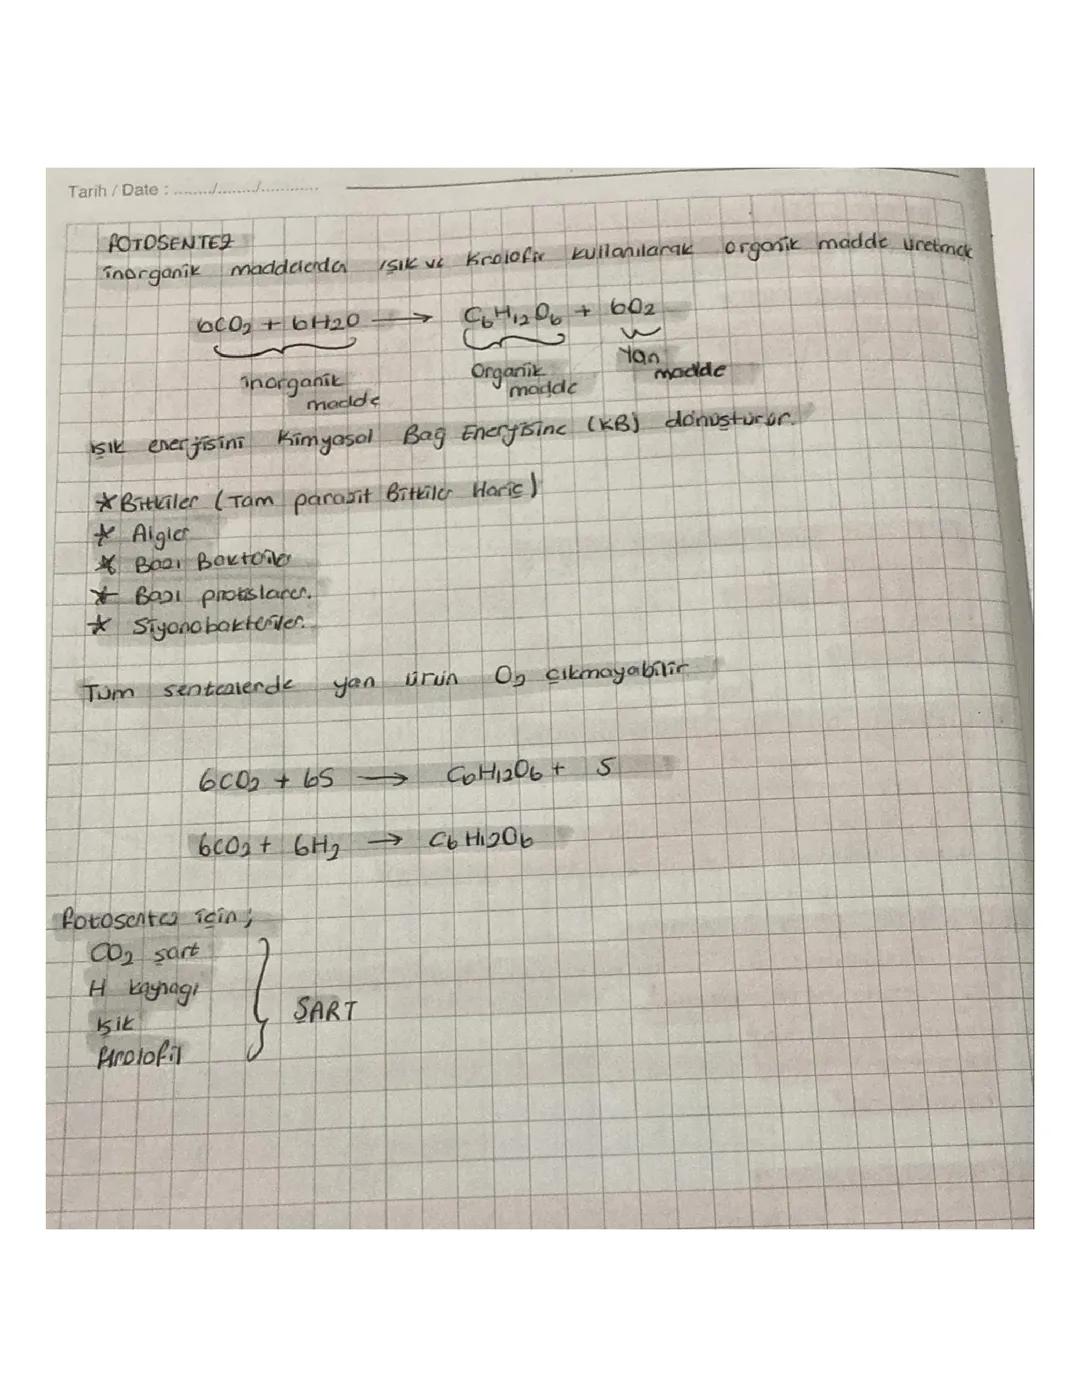 Tarih / Date : ......../......../............
FOTOSENTEZ
inorganik maddelerden ışık ve Krolofil kullanılarak organik madde üretmek
6CO2 + 6H2O → C6H12O6 + 6O2
inorganik madde
Organik madde
Yan madde
ışık enerjisini Kimyasal Bağ Enerjisine (KB) dönüştürür.
* Bitkiler (Tam parazit Bitkiler Hariç)
* Algler
* Bazı Bakteriler
* Bazı protislarer.
* Siyanobakteriler.
Tüm sentezlerde yan ürün O2 çıkmayabilir
6CO2 + 6S → C6H12O6 + S
6CO2 + 6H2 → C6H12O6
fotosentez için;
CO2 şart
H kaynağı
ışık
Krolofil
ŞART